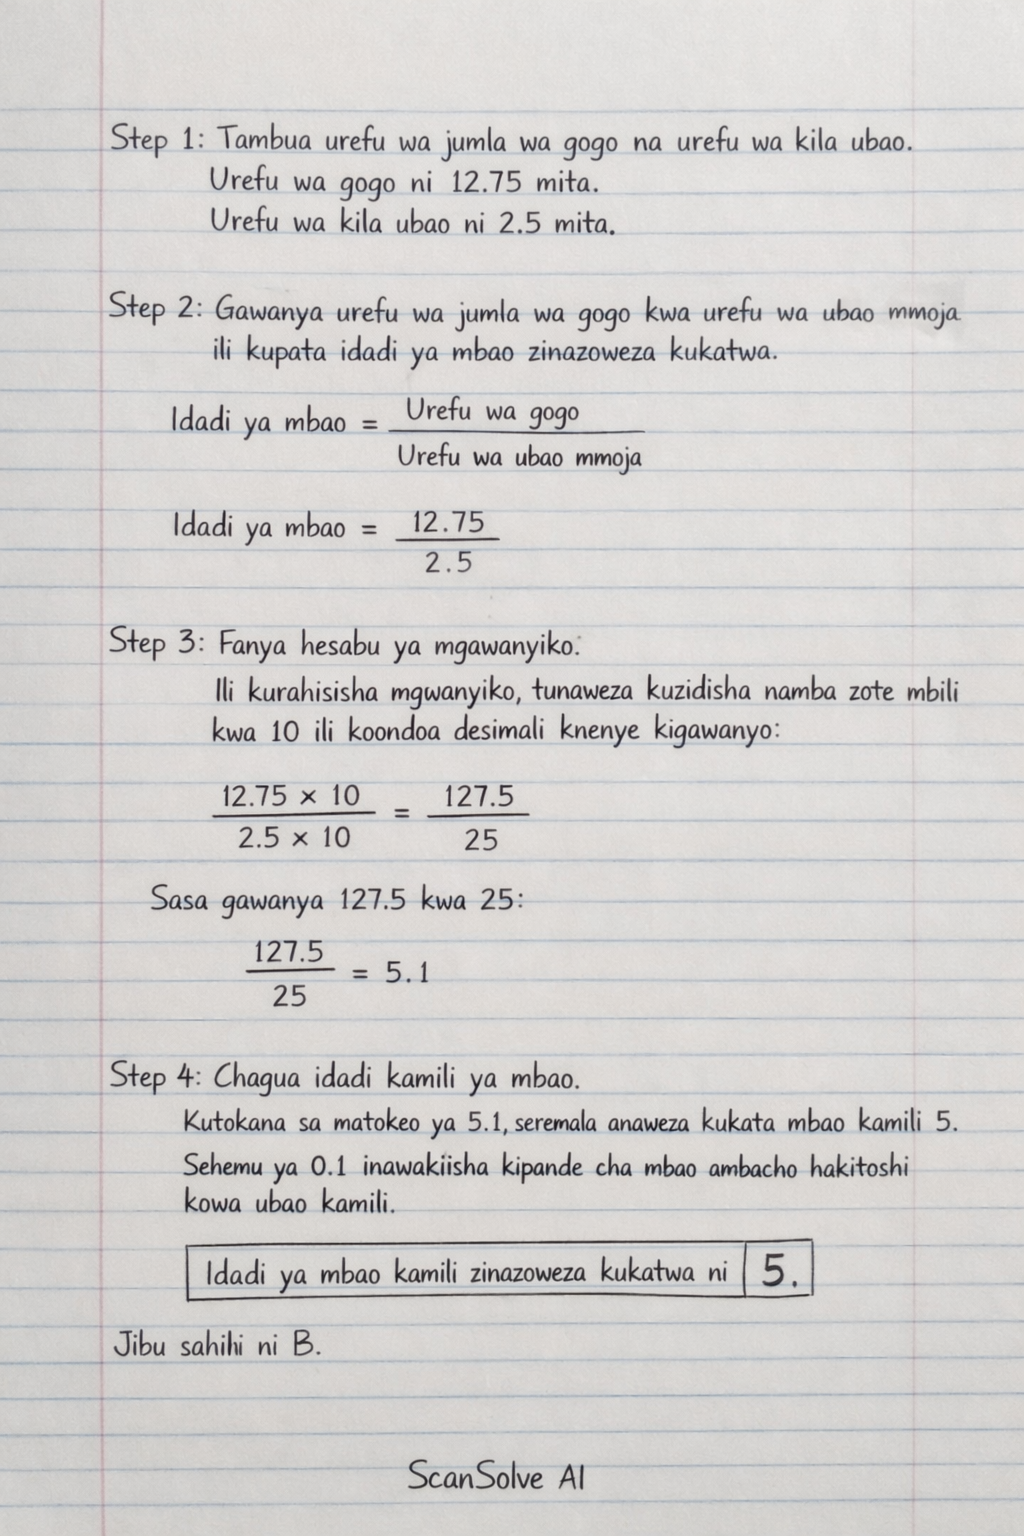 Step 1: Tambua urefu wa jumla wa gogo na urefu wa kila ubao.
Urefu wa gogo ni 12.75 mita.
Urefu wa kila ubao ni 2.5 mita.
Step 2: Gawanya urefu wa jumla wa gogo kwa urefu wa ubao mmoja
ili kupata idadi ya mbao zinazoweza kukatwa.
Idadi ya mbao = Urefu wa gogo
Urefu wa ubao mmoja
Idadi ya mbao = 12.75
2.5
Step 3: Fanya hesabu ya mgawanyiko:
Ili kurahisisha mgwanyiko, tunaweza kuzidisha namba zote mbili
kwa 10 ili koondoa desimali knenye kigawanyo:
12.75 × 10 = 127.5
2.5 × 10 25
Sasa gawanya 127.5 kwa 25:
127.5 = 5.1
25
Step 4: Chagua idadi kamili ya mbao.
Kutokana sa matokeo ya 5.1, seremala anaweza kukata mbao kamili 5.
Sehemu ya 0.1 inawakiisha kipande cha mbao ambacho hakitoshi
kowa ubao kamili.
Idadi ya mbao kamili zinazoweza kukatwa ni 5.
Jibu sahihi ni B.
ScanSolve AI